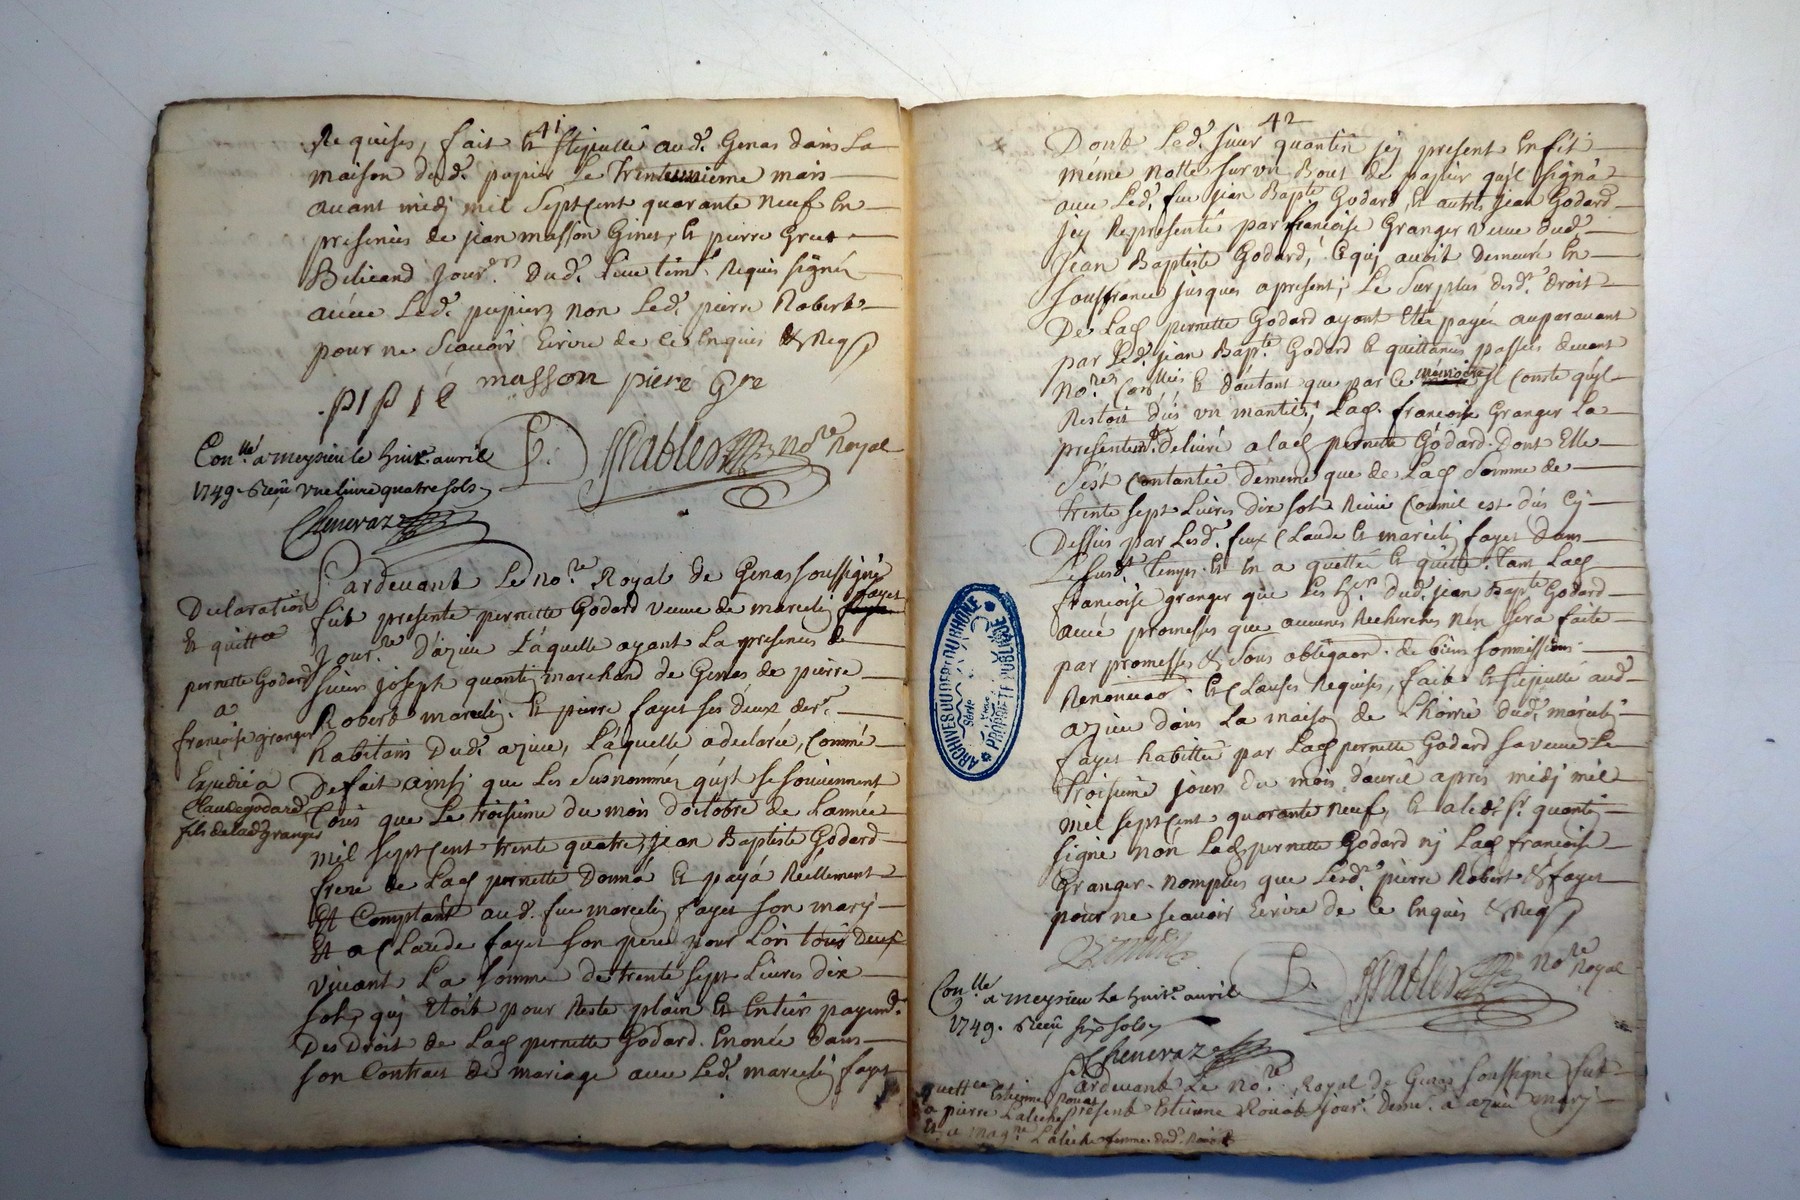 41
Requises, fait et stipullé aud. Genas dans La
maison dud. papier Le trente unieme mars
avant midj mil Sept Cent quarante neuf En
presences de jean masson Ginet, et pierre Gree
Bilicand jour. Dud. Lieu tem. Requis signés
avec Led. papier, non Led. pierre Robert
pour ne scavoir Ecrire de ce Enquis & Req
PIPIÉ masson piere Gre
Con.lle a meysieu le huit avril
1749. Receu vne livre quatre sols
Cheneraz
no.re Royal
Pardevant Le no.re Royal de Genas soussigné
Declaration
et quitt.ce
pernette Godard
a
françoise granger
Expedié a
Claude godard
fils de lad granger
fut presente pernette Godard veuve de marcelj fayet
jour. d'azieu Laquelle ayant La presence de
sieur joseph quantin marchand de Genas de pierre
Robert marcelj. et pierre fayet ses deux
habitans Dud. azieu, Laquelle a declaré, Comme
De fait ainsi que Les Susnommés qu'jl se souviennent
que Le troisieme du mois d'octobre de L'année
mil sept Cent trente quatre, jean Baptiste Godard
frere de Lad pernette Donna et paya Réellement
Et Comptant aud. feu marcelj fayet son mary
Et a Claude fayet son pere pour Lors tous Deux
vivant La somme de trente sept Livres dix
sols, quj Etoit pour Reste plain et Entier payem.
Des Droit de Lad pernette Godard. Enoncé dans
son Contract de mariage avec Led. marcelj fayet
42
Dont Led. sieur quantin jcy present En fit
méme notte sur vn Bout de papier qu'jl signa
avec Led. feu jean Bap.te Godard, et autre jean Godard
jcy Representé par françoise Granger veuve dud.
Jean Baptiste Godard, Et quj auoit Demeuré En
souffrance jusques apresent; Le Surplus desd. droit
De Lad pernette Godard ayant Eté payée auparavant
par Led. jean Bap.te Godard et quittances passées devant
No.res et d'autant que par Ce memoire jl Conste qu'jl
Restoit Dûs vn mantil, Lad. francoise Granger La
presentem. Delivré a lad pernette Godard. Dont Elle
s'est Contantée de meme que de Lad Somme de
trente sept Livres dix sols Reçue Comme il est dis Cj
Dessus par Lesd. feux Claude et marcelj fayet dans
Le susd. temps. et En a quitté et quitte. tam Lad
francoise granger que Les h.rs Dud. jean Bap.te Godard
avec promesses que aucunes Recherches n'en sera faite
par promesses & sous obligaon. de biens soumissions
Renonciao. et Clauses Requises, fait et stipullé aud.
azieu dans La maison de L'hoirie dud. marcelj
fayet habittée par Lad pernette Godard sa veuve Le
troisieme jour du mois d'avril apres midj mil
sept Cent quarante neuf, et a led. s.r quantin
signé non Lad pernette Godard nj Lad francoise
Granger. nomplus que Lesd. pierre Robert & fayet
pour ne scavoir Ecrire de ce Enquis & Req
no.re Royal
Con.lle a meysieu Le huit avril
1749. Receu six sols
Cheneraz
ARCHIVES DU DEPT DU RHONE
Série
PROPRIÉTÉ PUBLIQUE
Pardevant Le no.re Royal de Genas soussigné fut
quitt.ce Estienne Rouat
a pierre Laleche
present Estienne Rouat jour. Deme. a azieu mary
et a mag.ne Laleche femme dud. Rouat